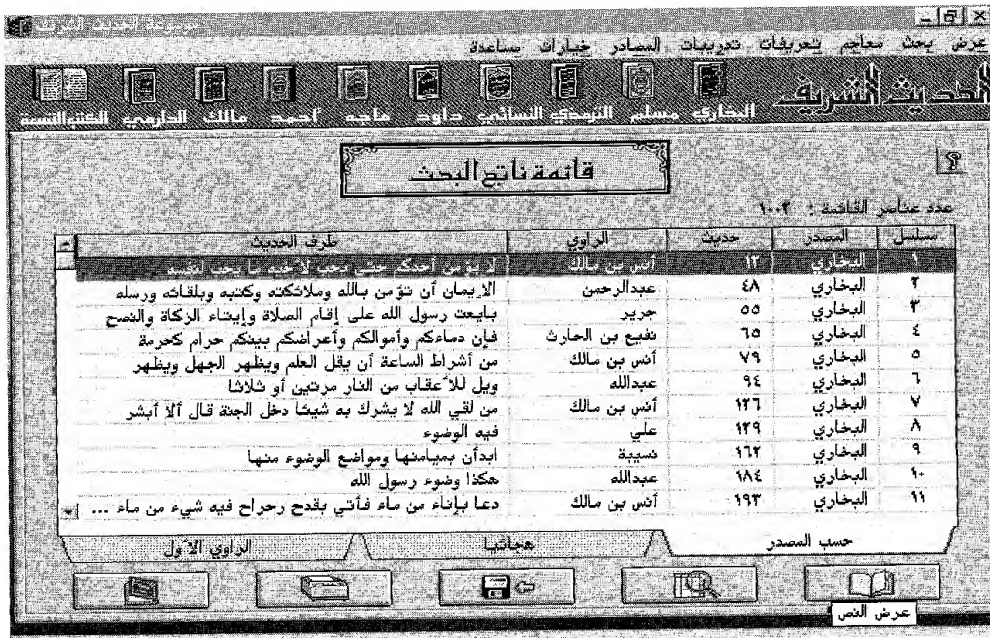 موسوعة الحديث الشريف
عرض بحث معاجم تعريفات تعريبات المصادر خيارات مساعدة
الحديث الشريف
البخاري مسلم الترمذي النسائي داود ماجه أحمد مالك الدارمي الكتب التسعة
قائمة ناتج البحث
عدد عناصر القائمة : ١٠٠٣
مسلسل المصدر حديث الراوي طرف الحديث
١ البخاري ١٢ أنس بن مالك لا يؤمن أحدكم حتى يحب لأخيه ما يحب لنفسه
٢ البخاري ٤٨ عبدالرحمن الإيمان أن تؤمن بالله وملائكته وكتبه وبلقائه ورسله
٣ البخاري ٥٥ جرير بايعت رسول الله على إقام الصلاة وإيتاء الزكاة والنصح
٤ البخاري ٦٥ نفيع بن الحارث فإن دماءكم وأموالكم وأعراضكم بينكم حرام كحرمة
٥ البخاري ٧٩ أنس بن مالك من أشراط الساعة أن يقل العلم ويظهر الجهل ويظهر
٦ البخاري ٩٤ عبدالله ويل للأعقاب من النار مرتين أو ثلاثا
٧ البخاري ١٢٦ أنس بن مالك من لقي الله لا يشرك به شيئا دخل الجنة قال ألا أبشر
٨ البخاري ١٢٩ علي فيه الوضوء
٩ البخاري ١٦٢ نسيبة ابدأن بميامنها ومواضع الوضوء منها
١٠ البخاري ١٨٤ عبدالله هكذا وضوء رسول الله
١١ البخاري ١٩٣ أنس بن مالك دعا بإناء من ماء فأتي بقدح رحراح فيه شيء من ماء ...
حسب المصدر هجائيا الراوي الأول
عرض النص